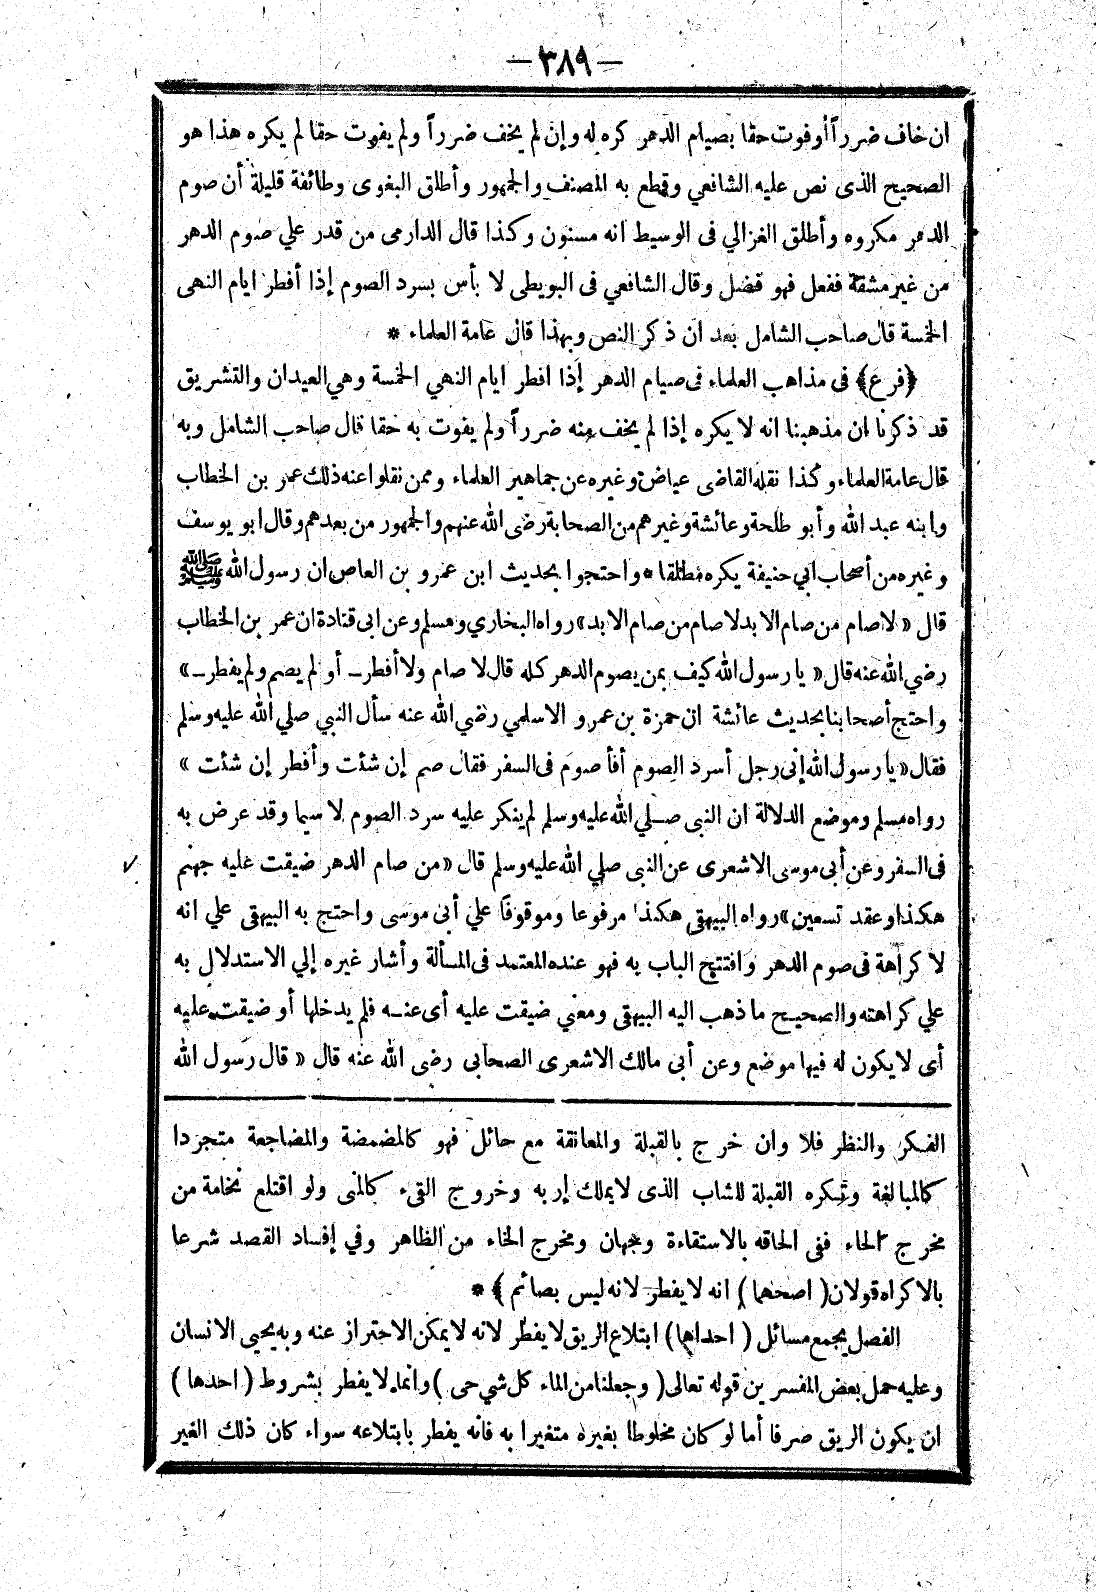 — ٣٨٩ —
ان خاف ضرراً أوفوت حقا بصيام الدهر كره له وإن لم يخف ضرراً ولم يفوت حقا لم يكره هذا هو
الصحيح الذى نص عليه الشافعي وقطع به المصنف والجمهور وأطلق البغوى وطائفة قليلة أن صوم
الدهر مكروه وأطلق الغزالي فى الوسيط انه مسنون وكذا قال الدارمى من قدر علي صوم الدهر
من غير مشقة ففعل فهو فضل وقال الشافعي فى البويطى لا بأس بسرد الصوم إذا أفطر ايام النهى
الخمسة قال صاحب الشامل بعد ان ذكر النص وبهذا قال عامة العلماء *
﴿فرع﴾ فى مذاهب العلماء فى صيام الدهر إذا افطر ايام النهي الخمسة وهي العيدان والتشريق
قد ذكرنا ان مذهبنا انه لا يكره إذا لم يخف منه ضرراً ولم يفوت به حقا قال صاحب الشامل وبه
قال عامة العلماء وكذا نقله القاضى عياض وغيره عن جماهير العلماء وممن نقلوا عنه ذلك عمر بن الخطاب
وابنه عبد الله وأبو طلحة وعائشة وغيرهم من الصحابة رضى الله عنهم والجمهور من بعدهم وقال ابو يوسف
وغيره من أصحاب ابي حنيفة يكره مطلقا * واحتجوا بحديث ابن عمرو بن العاص ان رسول الله ﷺ
قال « لا صام من صام الابد لا صام من صام الابد » رواه البخاري ومسلم وعن ابى قتادة ان عمر بن الخطاب
رضي الله عنه قال « يا رسول الله كيف بمن يصوم الدهر كله قال لا صام ولا أفطر ــ أو لم يصم ولم يفطر ــ »
واحتج أصحابنا بحديث عائشة ان حمزة بن عمرو الاسلمي رضي الله عنه سأل النبي صلي الله عليه وسلم
فقال « يا رسول الله إنى رجل أسرد الصوم أفأصوم فى السفر فقال صم إن شئت وأفطر إن شئت »
رواه مسلم وموضع الدلالة ان النبى صلي الله عليه وسلم لم ينكر عليه سرد الصوم لا سيما وقد عرض به
فى السفر وعن أبى موسى الاشعرى عن النبى صلي الله عليه وسلم قال « من صام الدهر ضيقت عليه جهنم
هكذا وعقد تسعين » رواه البيهقى هكذا مرفوعا وموقوفا علي أبى موسى واحتج به البيهقى علي انه
لا كراهة فى صوم الدهر وافتتح الباب به فهو عنده المعتمد فى المسألة وأشار غيره إلي الاستدلال به
علي كراهته والصحيح ما ذهب اليه البيهقى ومعني ضيقت عليه أى عنه فلم يدخلها أو ضيقت عليه
أى لا يكون له فيها موضع وعن أبى مالك الاشعرى الصحابى رضى الله عنه قال « قال رسول الله
الفكر والنظر فلا وان خرج بالقبلة والمعانقة مع حائل فهو كالمضمضة والمضاجعة متجردا
كالمبالغة وتكره القبلة للشاب الذى لا يملك إربه وخروج القىء كالمنى ولو اقتلع نخامة من
مخرج الحاء ففى الحاقه بالاستقاءة وجهان ومخرج الخاء من الظاهر وفي إفساد القصد شرعا
بالاكراه قولان ( اصحهما ) انه لا يفطر لانه ليس بصائم ﴾ *
الفصل يجمع مسائل ( احداها ) ابتلاع الريق لا يفطر لانه لا يمكن الاحتراز عنه وبه يحيى الانسان
وعليه حمل بعض المفسرين قوله تعالى ( وجعلنا من الماء كل شي حى ) وانما لا يفطر بشروط ( احدها )
ان يكون الريق صرفا أما لو كان مخلوطا بغيره متغيرا به فانه يفطر بابتلاعه سواء كان ذلك الغير